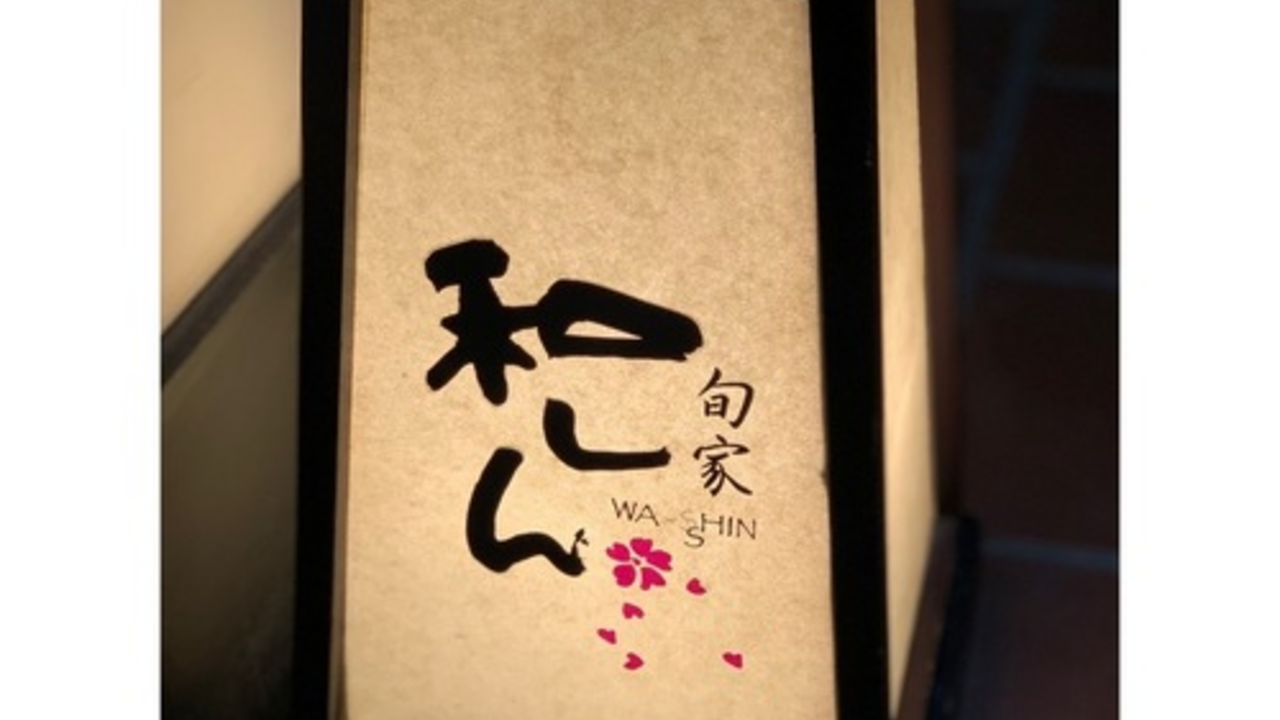 和しん
旬家
WA-SHIN